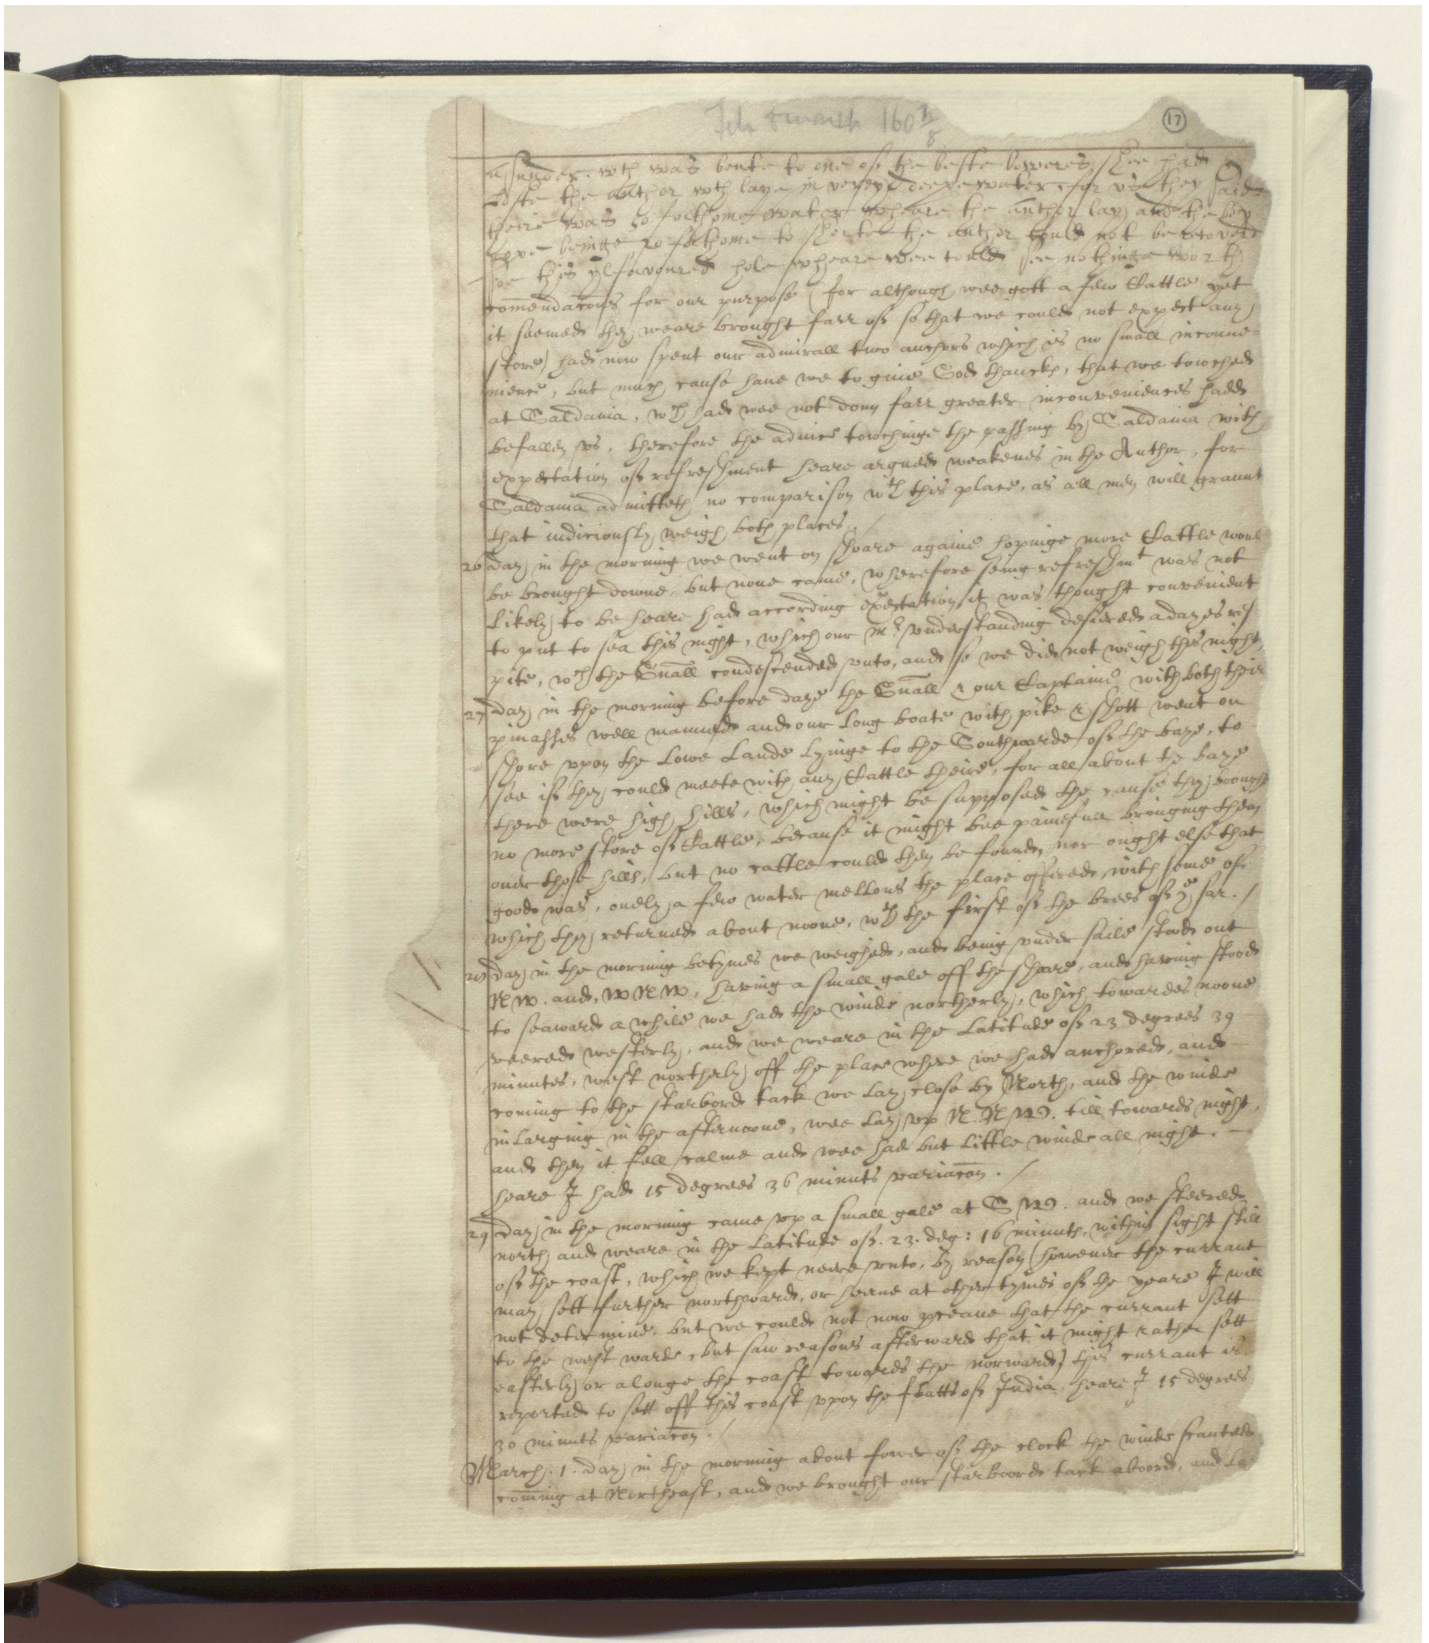 Feb & march 160 7/8
17
a sunder, wch was bente to one of the beste bowers, shee had
loste the anchor wch laye in verey deepe water, for as they saide
theire was 50 fathome water wheare the anchor lay, and the boy
rope beinge 20 fathome to shorte the anchor could not be recovered
soe this ylfavoured hole wheare wee could see nothinge worth
comendacons for our purpose (for although wee gott a few Cattle yet
it seemed they weare brought farr of so that we could not expect any
store) had now spent our admirall two anchors which is no small inconue-
nience, but much cause haue we to giue God thancks, that we towched
at Saldania, wch had wee not donn farr greater inconveniences hadd
befallen vs, therefore the advice towchinge the passing by Saldania with
expectation of refreshment heare argued weakenes in the Author, for
Saldania admitteth no comparison wth this place, as all men will graunt
that iudiciously weigh both places. /
26 day in the morning we went on shoare againe hopinge more Cattle woul
be brought downe, but none came, wherefore seing refreshmt was not
likely to be heare had according expectation it was thought convenient
to put to sea this night, which our mr. vnderstanding desiered a dayes res
pite, wch the Gnall condescended vnto, and so we did not weigh this night
27 day in the morning before daye the Gnall & our Captaine with both their
pinasses well manned and our long boate with pike & shott went on
shore vpon the Lowe Lande Lyinge to the Southwarde of the baye, to
see if they could meete with any Cattle theire, for all about the baye
there were high hills, which might be supposed the cause they brought
no more store of Cattle, because it might bee painefull bringing them
ouer those hills, but no cattle could they be founde, nor ought else that
good was, onely a few water mellons the place offered, with some of
which they returned about noone, wth the first of the brees of ye sea. /
28 day in the morning betymes we weighed, and being vnder saile stood out
NW. and, WNW, having a small gale off the shoare, and having stood
to seaward a while we had the winde northerly, which towardes noone
veered westerly, and we weare in the Latitude of 23 degrees 39
minutes, west northerly off the place where we had anchored, and
coming to the starbord tack we lay close by North, and the winde
inlarging in the afternoone, wee lay vp N. N W. till towards night,
and then it fell calme and wee had but little winde all night.
heare I had 15 degrees 36 minuts variacon. /
29 day in the morning came vp a small gale at S W. and we steered
north and weare in the Latitude of. 23. deg: 16 minuts, within sight still
of the coast, which we kept neere vnto, by reason (howeuer the currant
may sett further northward, or heare at other tymes of the yeare I will
not determine. but we could not now perceaue that the currant sett
to the west warde, but saw reasons afterward that it might rather sett
easterly or alonge the coast towards the norward) this currant is
reported to sett off this coast vpon the flatts of India. heare I 15 degrees
30 minuts variacon. /
March. 1. day in the morning about fower of the clock the winde scanted
coming at Northeast, and we brought our starboord tack aboord, and La